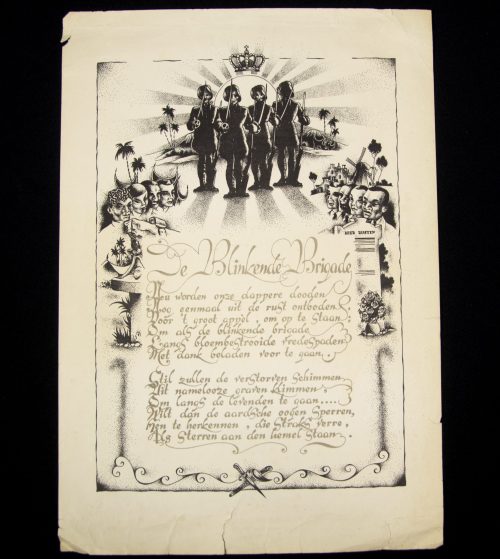 De Blinkende Brigade
Nou worden onze dappere dooden
Nog eenmaal uit de rust ontboden
Voor 't groot appel, om op te staan;
Om als de blinkende brigade
Langs bloembestrooide vredespaden
Met dank beladen voor te gaan..
Stil zullen de verstorven schimmen
Uit namelooze graven klimmen
Om langs de levenden te gaan....
Wilt dan de aardsche oogen sperren,
Hen te herkennen, die straks verre,
Als sterren aan den hemel staan.